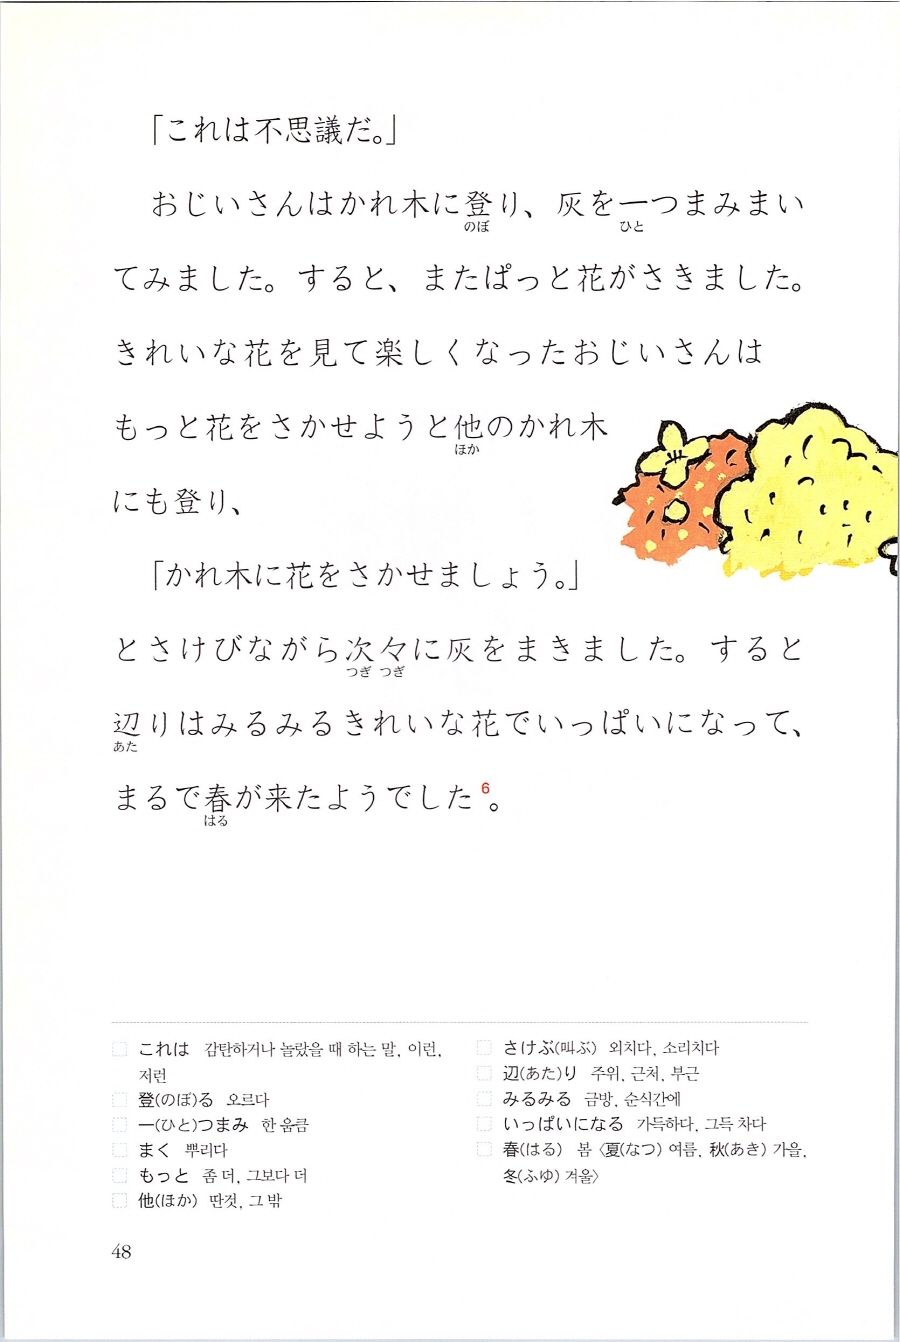 「これは不思議だ。」
おじいさんはかれ木に登り、灰を一つまみまい
のぼ ひと
てみました。すると、またぱっと花がさきました。
きれいな花を見て楽しくなったおじいさんは
もっと花をさかせようと他のかれ木
ほか
にも登り、
「かれ木に花をさかせましょう。」
とさけびながら次々に灰をまきました。すると
つぎ つぎ
辺りはみるみるきれいな花でいっぱいになって、
あた
まるで春が来たようでした6。
はる
これは 감탄하거나 놀랐을 때 하는 말, 이런,
저런
登(のぼ)る 오르다
一(ひと)つまみ 한 움큼
まく 뿌리다
もっと 좀 더, 그보다 더
他(ほか) 딴것, 그 밖
さけぶ(叫ぶ) 외치다, 소리치다
辺(あた)り 주위, 근처, 부근
みるみる 금방, 순식간에
いっぱいになる 가득하다, 그득 차다
春(はる) 봄 〈夏(なつ) 여름, 秋(あき) 가을,
冬(ふゆ) 겨울〉
48